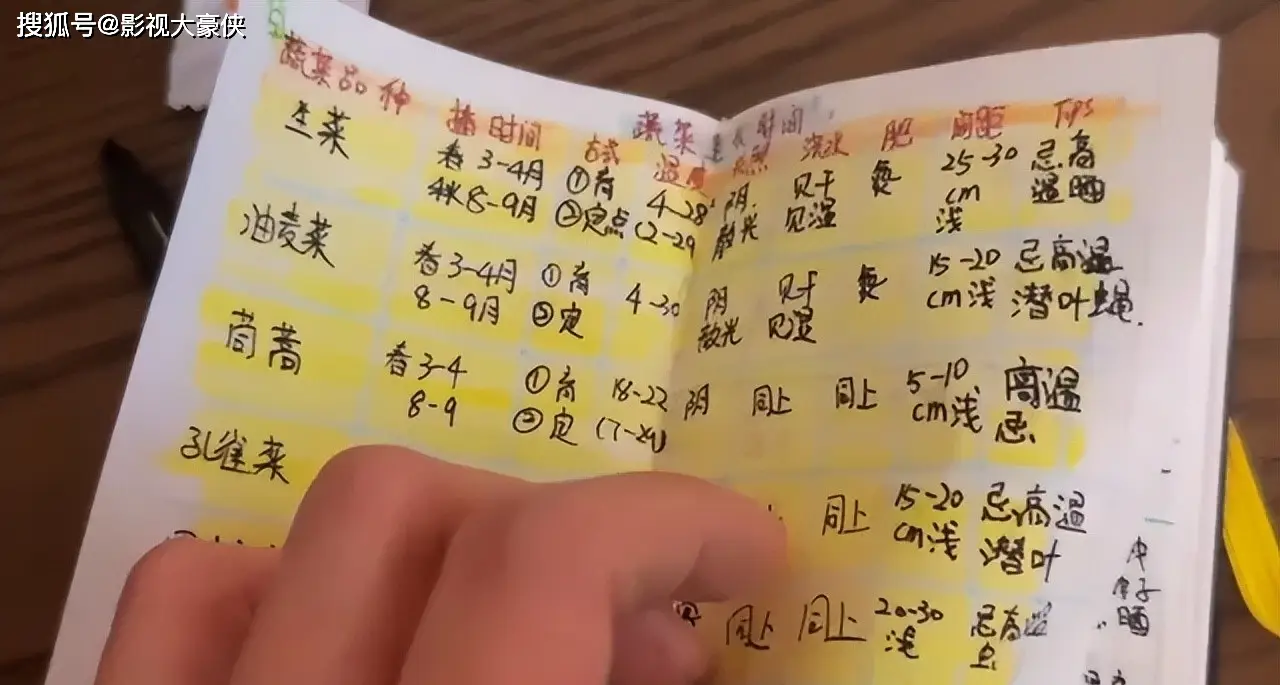 搜狐号@影视大豪侠
蔬菜品种 播时间 方式 蔬菜 时间
温 浇水 肥 间距 Tips
生菜 春 3-4月 ①育 4-28 阴 见干 氮 25-30 忌高
8-9月 ②定点 (2-29 散光 见湿 cm 温晒
浅
油麦菜 春3-4月 ①育 4-30 阴 见干 氮 15-20 忌高温
8-9月 ②定 散光 见湿 cm浅 潜叶蝇.
茼蒿 春3-4 ①育 18-22 阴 同上 同上 5-10 高温
8-9 ②定 (7-29) cm浅 忌.
孔雀菜 同上 15-20 忌高温
cm浅 潜叶
同上 同上 20-30 忌高温
浅 虫
晒